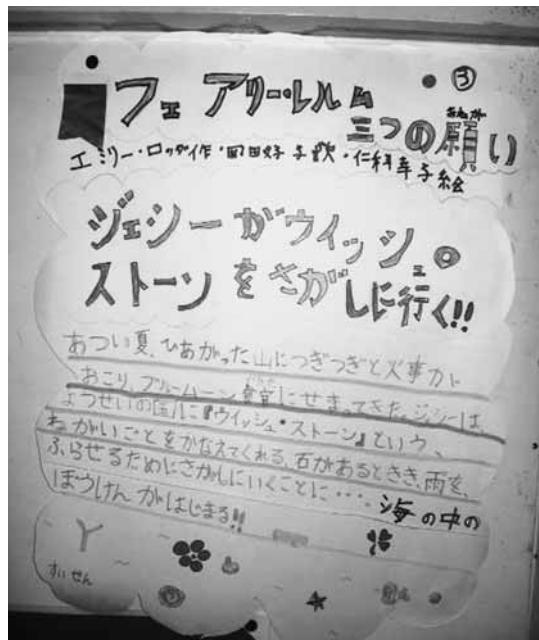 ③
フェアリー・レルム
三つの願い
ねが
エミリー・ロッダ作・岡田好子訳・仁科幸子絵
ジェシーがウイッシュ
ストーンをさがしに行く!!
あつい夏、ひあがった山につぎつぎと火事が
おこり、ブルームーン
にせまってきた。ジェシーは、
ようせいの国に『ウイッシュ・ストーン』という、
ねがいごとをかなえてくれる、石があるときき、雨を、
ふらせるためにさがしにいくことに‥‥海の中の
ぼうけんがはじまる!!
すいせん